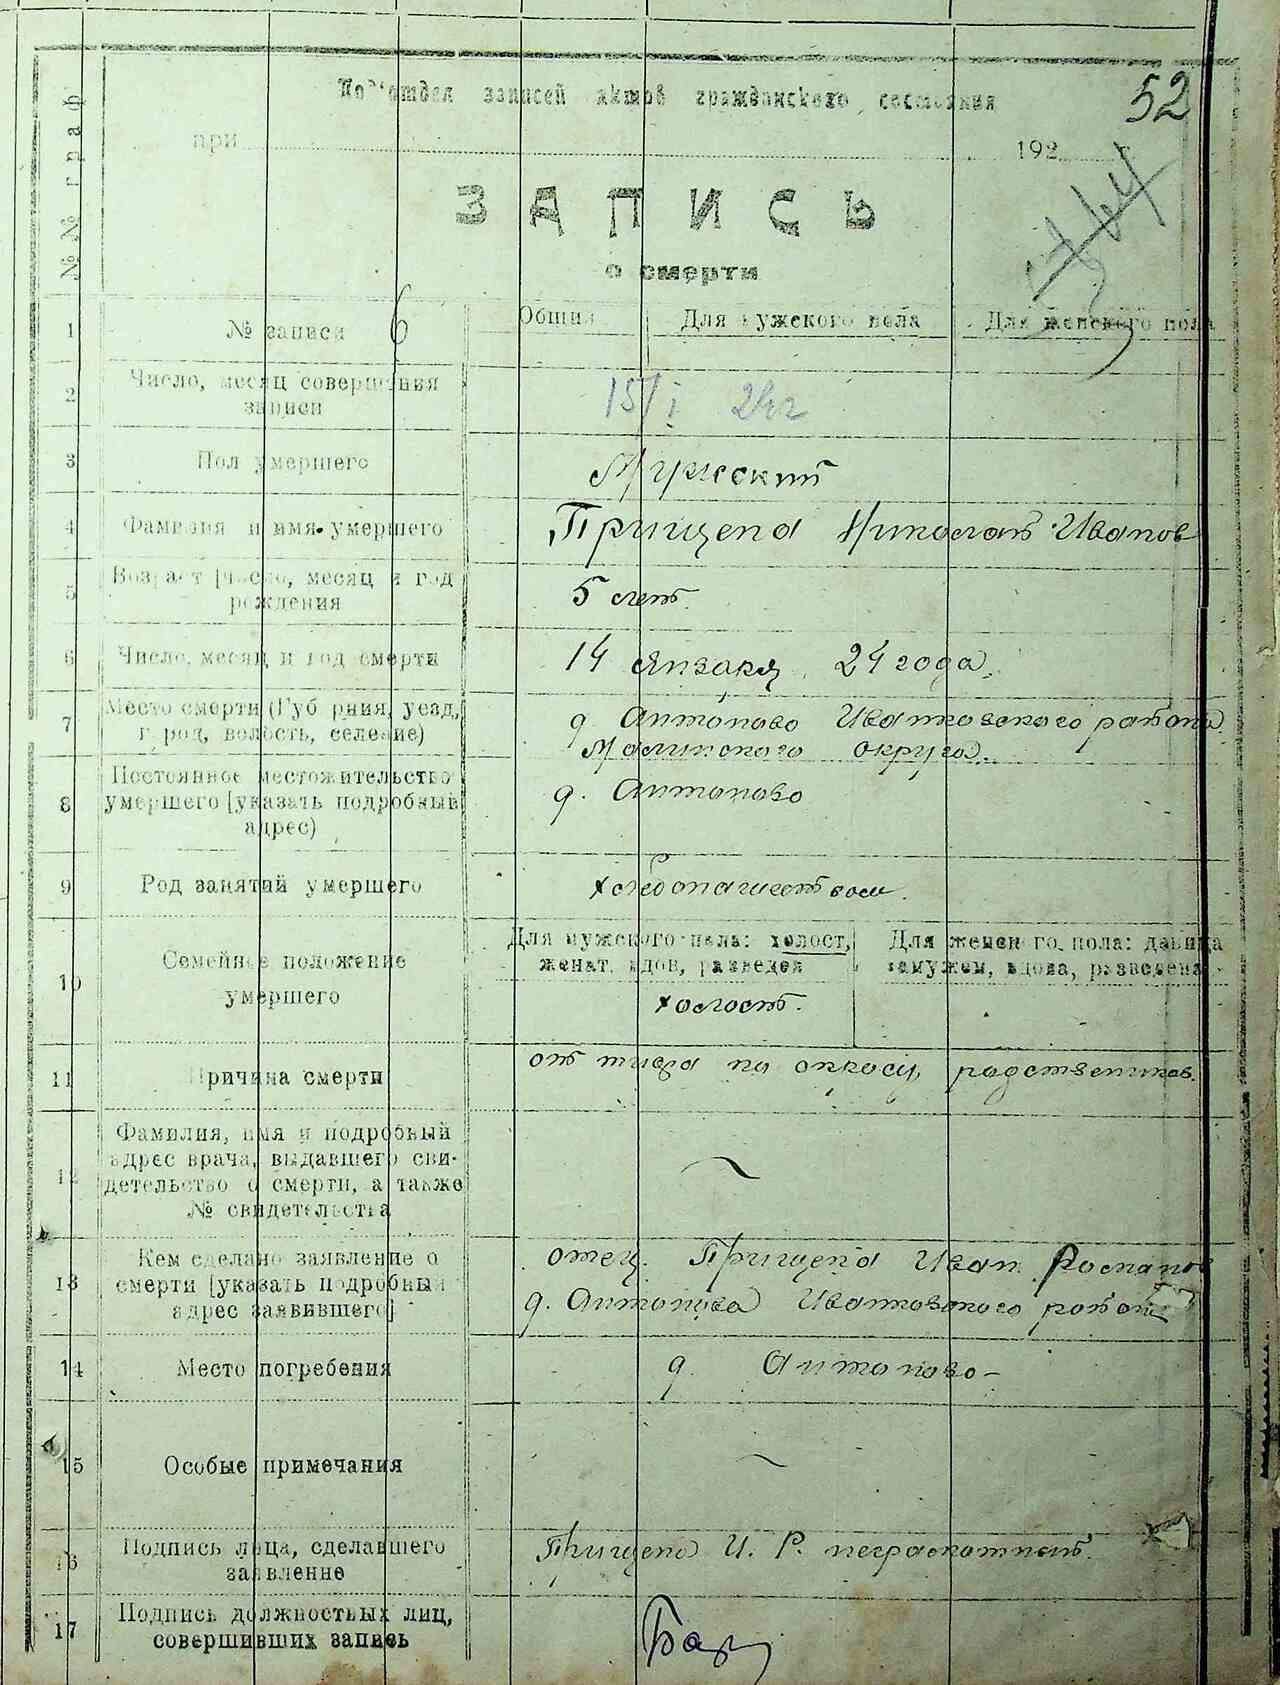 Подотдел записей актов гражданского состояния
52
при 192 г.
ЗАПИСЬ
о смерти
№№ граф
1 № записи 6 Общия Для мужского пола Для женского пола
2 Число, месяц совершения
записи
15/I 24 г
3 Пол умершего Мужской
4 Фамилия и имя умершего Прищепа Николай Иванов
5 Возраст [число, месяц и год
рождения
5 лет.
6 Число, месяц и год смерти 14 января 24 года.
7 Место смерти (Губерния, уезд,
город, волость, селение)
д. Антопово Иванковского района
Малинского округа.
8 Постоянное местожительство
умершего [указать подробный
адрес)
д. Антопово
9 Род занятий умершего хлебопашеством.
10 Семейное положение
умершего
Для мужского пола: холост,
женат, вдов, разведен
Для женского пола: девица
замужем, вдова, разведена
холост.
11 Причина смерти от тифа по опросу родствеников.
12 Фамилия, имя и подробный
адрес врача, выдавшего сви-
детельство о смерти, а также
№ свидетельства
~
13 Кем сделано заявление о
смерти [указать подробный
адрес заявившего]
отец. Прищепа Иван Романов
д. Антопова Иванковского район
14 Место погребения д. Антопово-
15 Особые примечания ~
16 Подпись лица, сделавшего
заявление
Прищепа И. Р. неграмотный.
17 Подпись должностных лиц,
совершивших запись